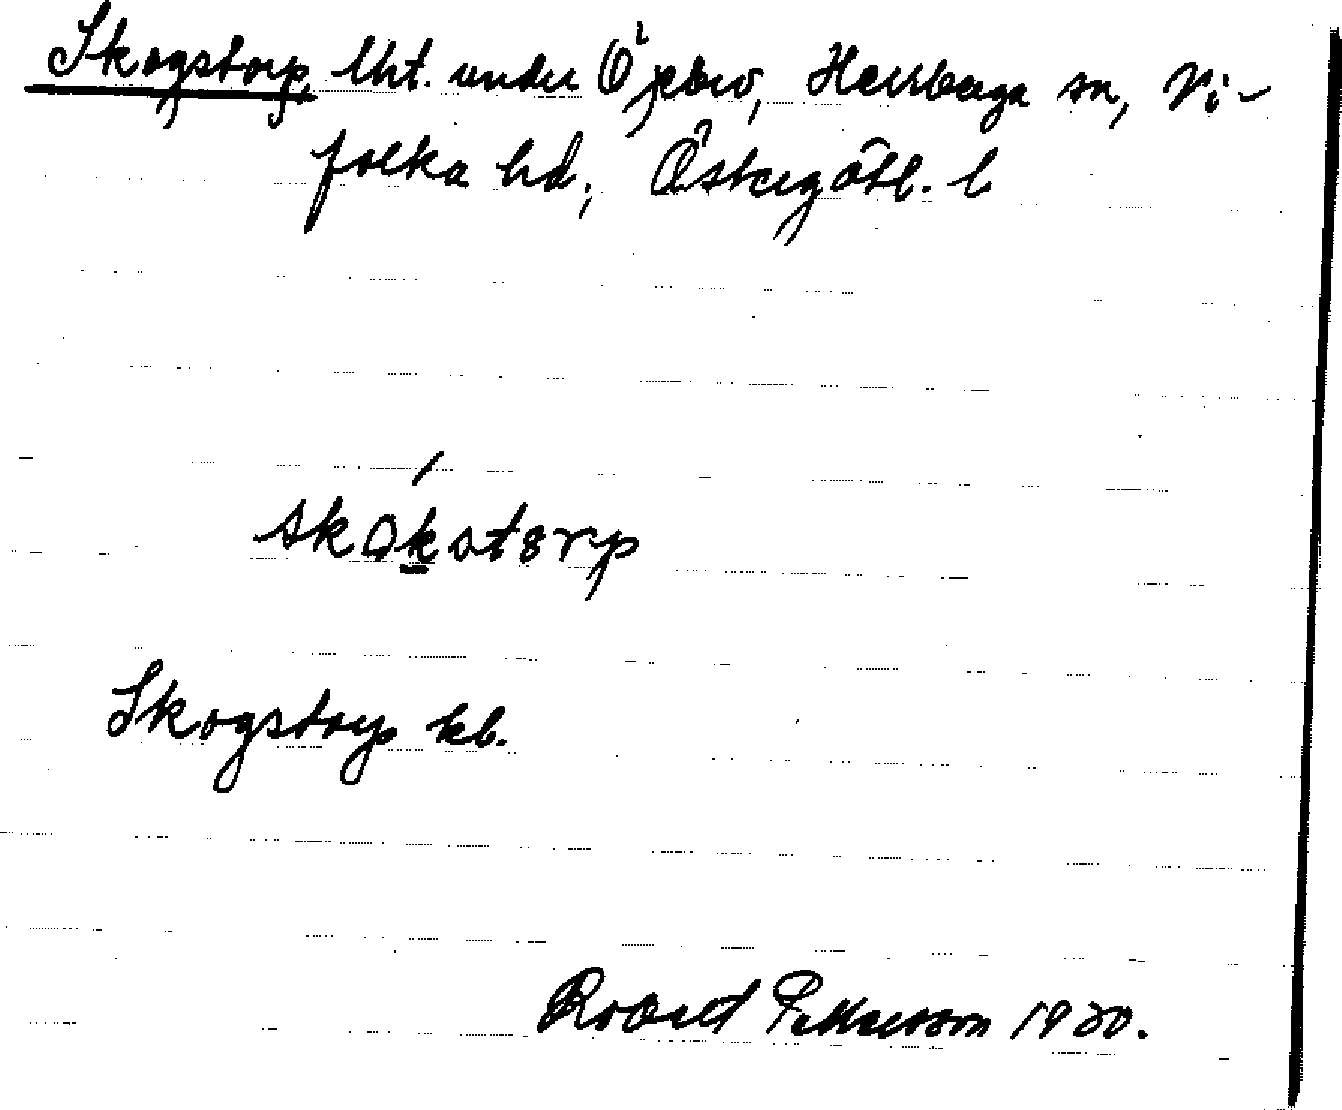 Skogstorp, lht. under Öjebro, Herrberga sn, Vi-
folka hd, Östergötl. l
skokstorp
Skogstorp kb.
Robert Pettersson 1930.